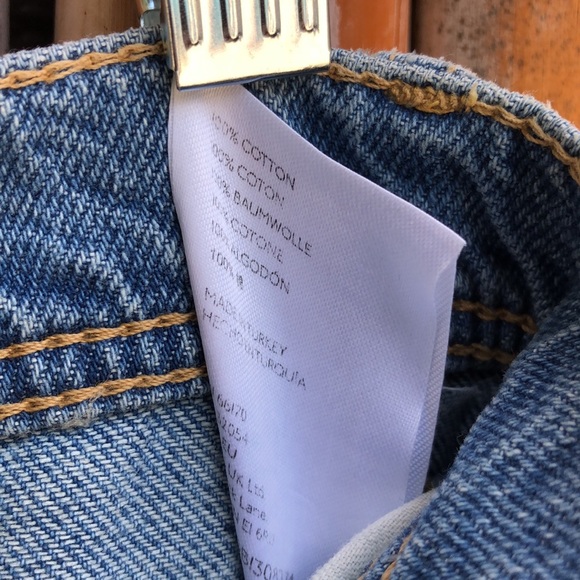 100% COTTON
00% COTON
100% BAUMWOLLE
100% COTONE
100% ALGODÓN
100% 棉
MADE IN TURKEY
HECHO EN TURQUÍA
66/70
2054
EU
UK Ltd
Lane
E1 6
B/308